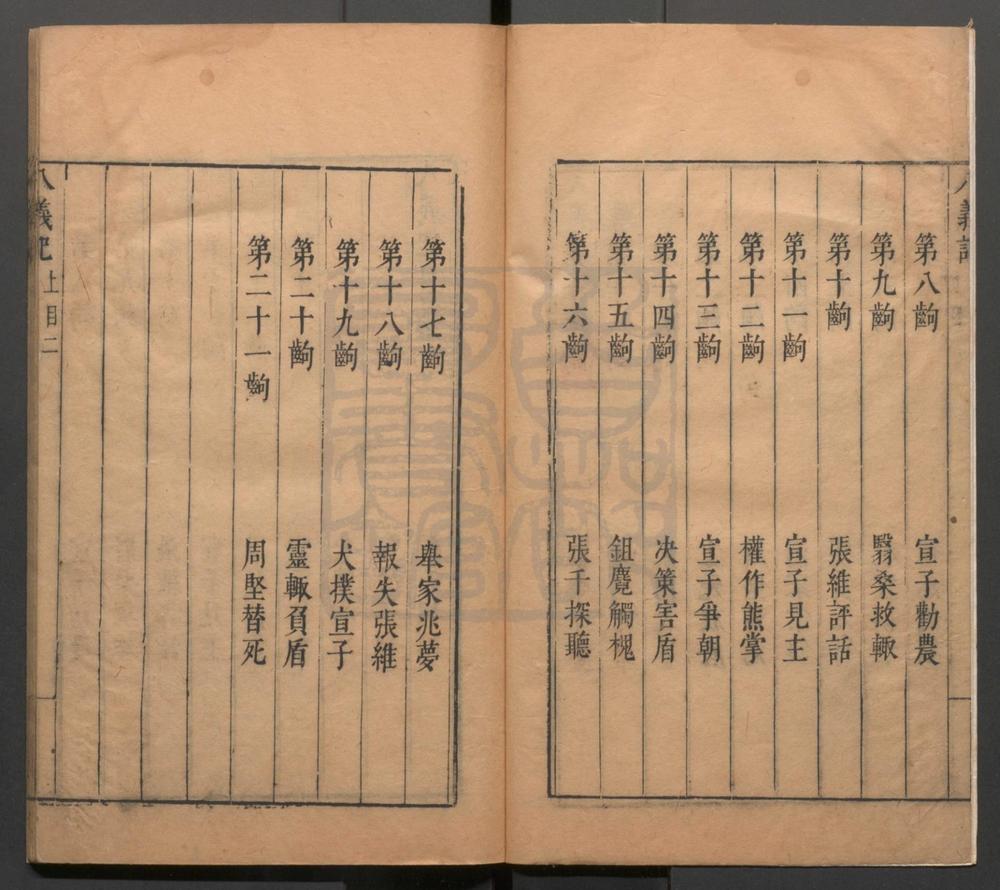 八義記
第八齣 宣子勸農
第九齣 翳桑救輙
第十齣 張維評話
第十一齣 宣子見主
第十二齣 權作熊掌
第十三齣 宣子爭朝
第十四齣 决策害盾
第十五齣 鉏麑觸槐
第十六齣 張千探聽
第十七齣 舉家兆夢
第十八齣 報失張維
第十九齣 犬撲宣子
第二十齣 靈輙負盾
第二十一齣 周堅替死
八義記 上目 二